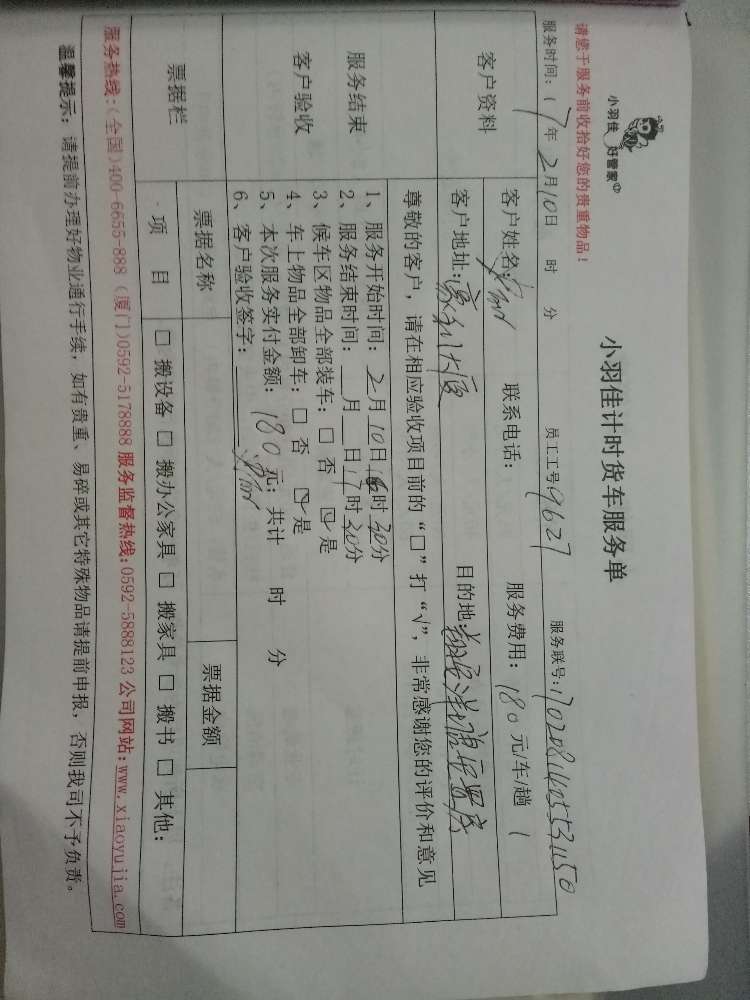 小羽佳 好管家
小羽佳计时货车服务单
请您于服务前收拾好您的贵重物品！
服务时间：17年2月10日 时 分 员工工号9627 服务联号：
客户资料
客户姓名： 联系电话： 服务费用：180元/车/趟
客户地址： 目的地：
尊敬的客户，请在相应验收项目前的“□”打“√”，非常感谢您的评价和意见
服务结束
客户验收
1、服务开始时间：2月10日16时30分
2、服务结束时间：__月__日17时30分
3、候车区物品全部装车：□ 否 ☑是
4、车上物品全部卸车：□ 否 ☑是
5、本次服务实付金额：180元；共计 时 分
6、客户验收签字：
票据栏
票据名称 票据金额
项 目 □ 搬设备 □ 搬办公家具 □ 搬家具 □ 搬书 □ 其他：
服务热线：(全国)400-6655-888 (厦门)0592-5178888 服务监督热线：0592-5888123 公司网站：www.xiaoyujia.com
温馨提示：请提前办理好物业通行手续，如有贵重、易碎或其它特殊物品请提前申报，否则我司不予负责。